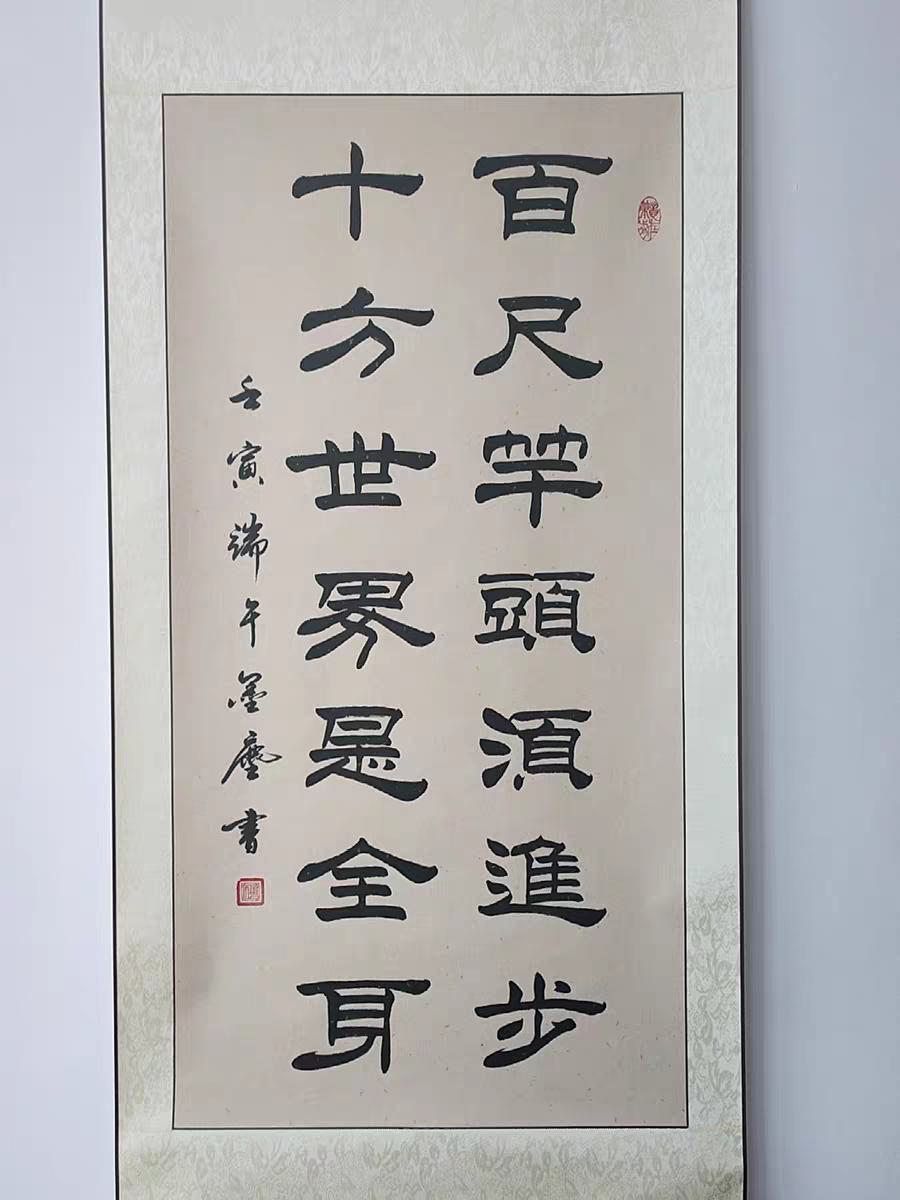 百尺竿頭須進步
十方世界是全身
壬寅端午墨廬書